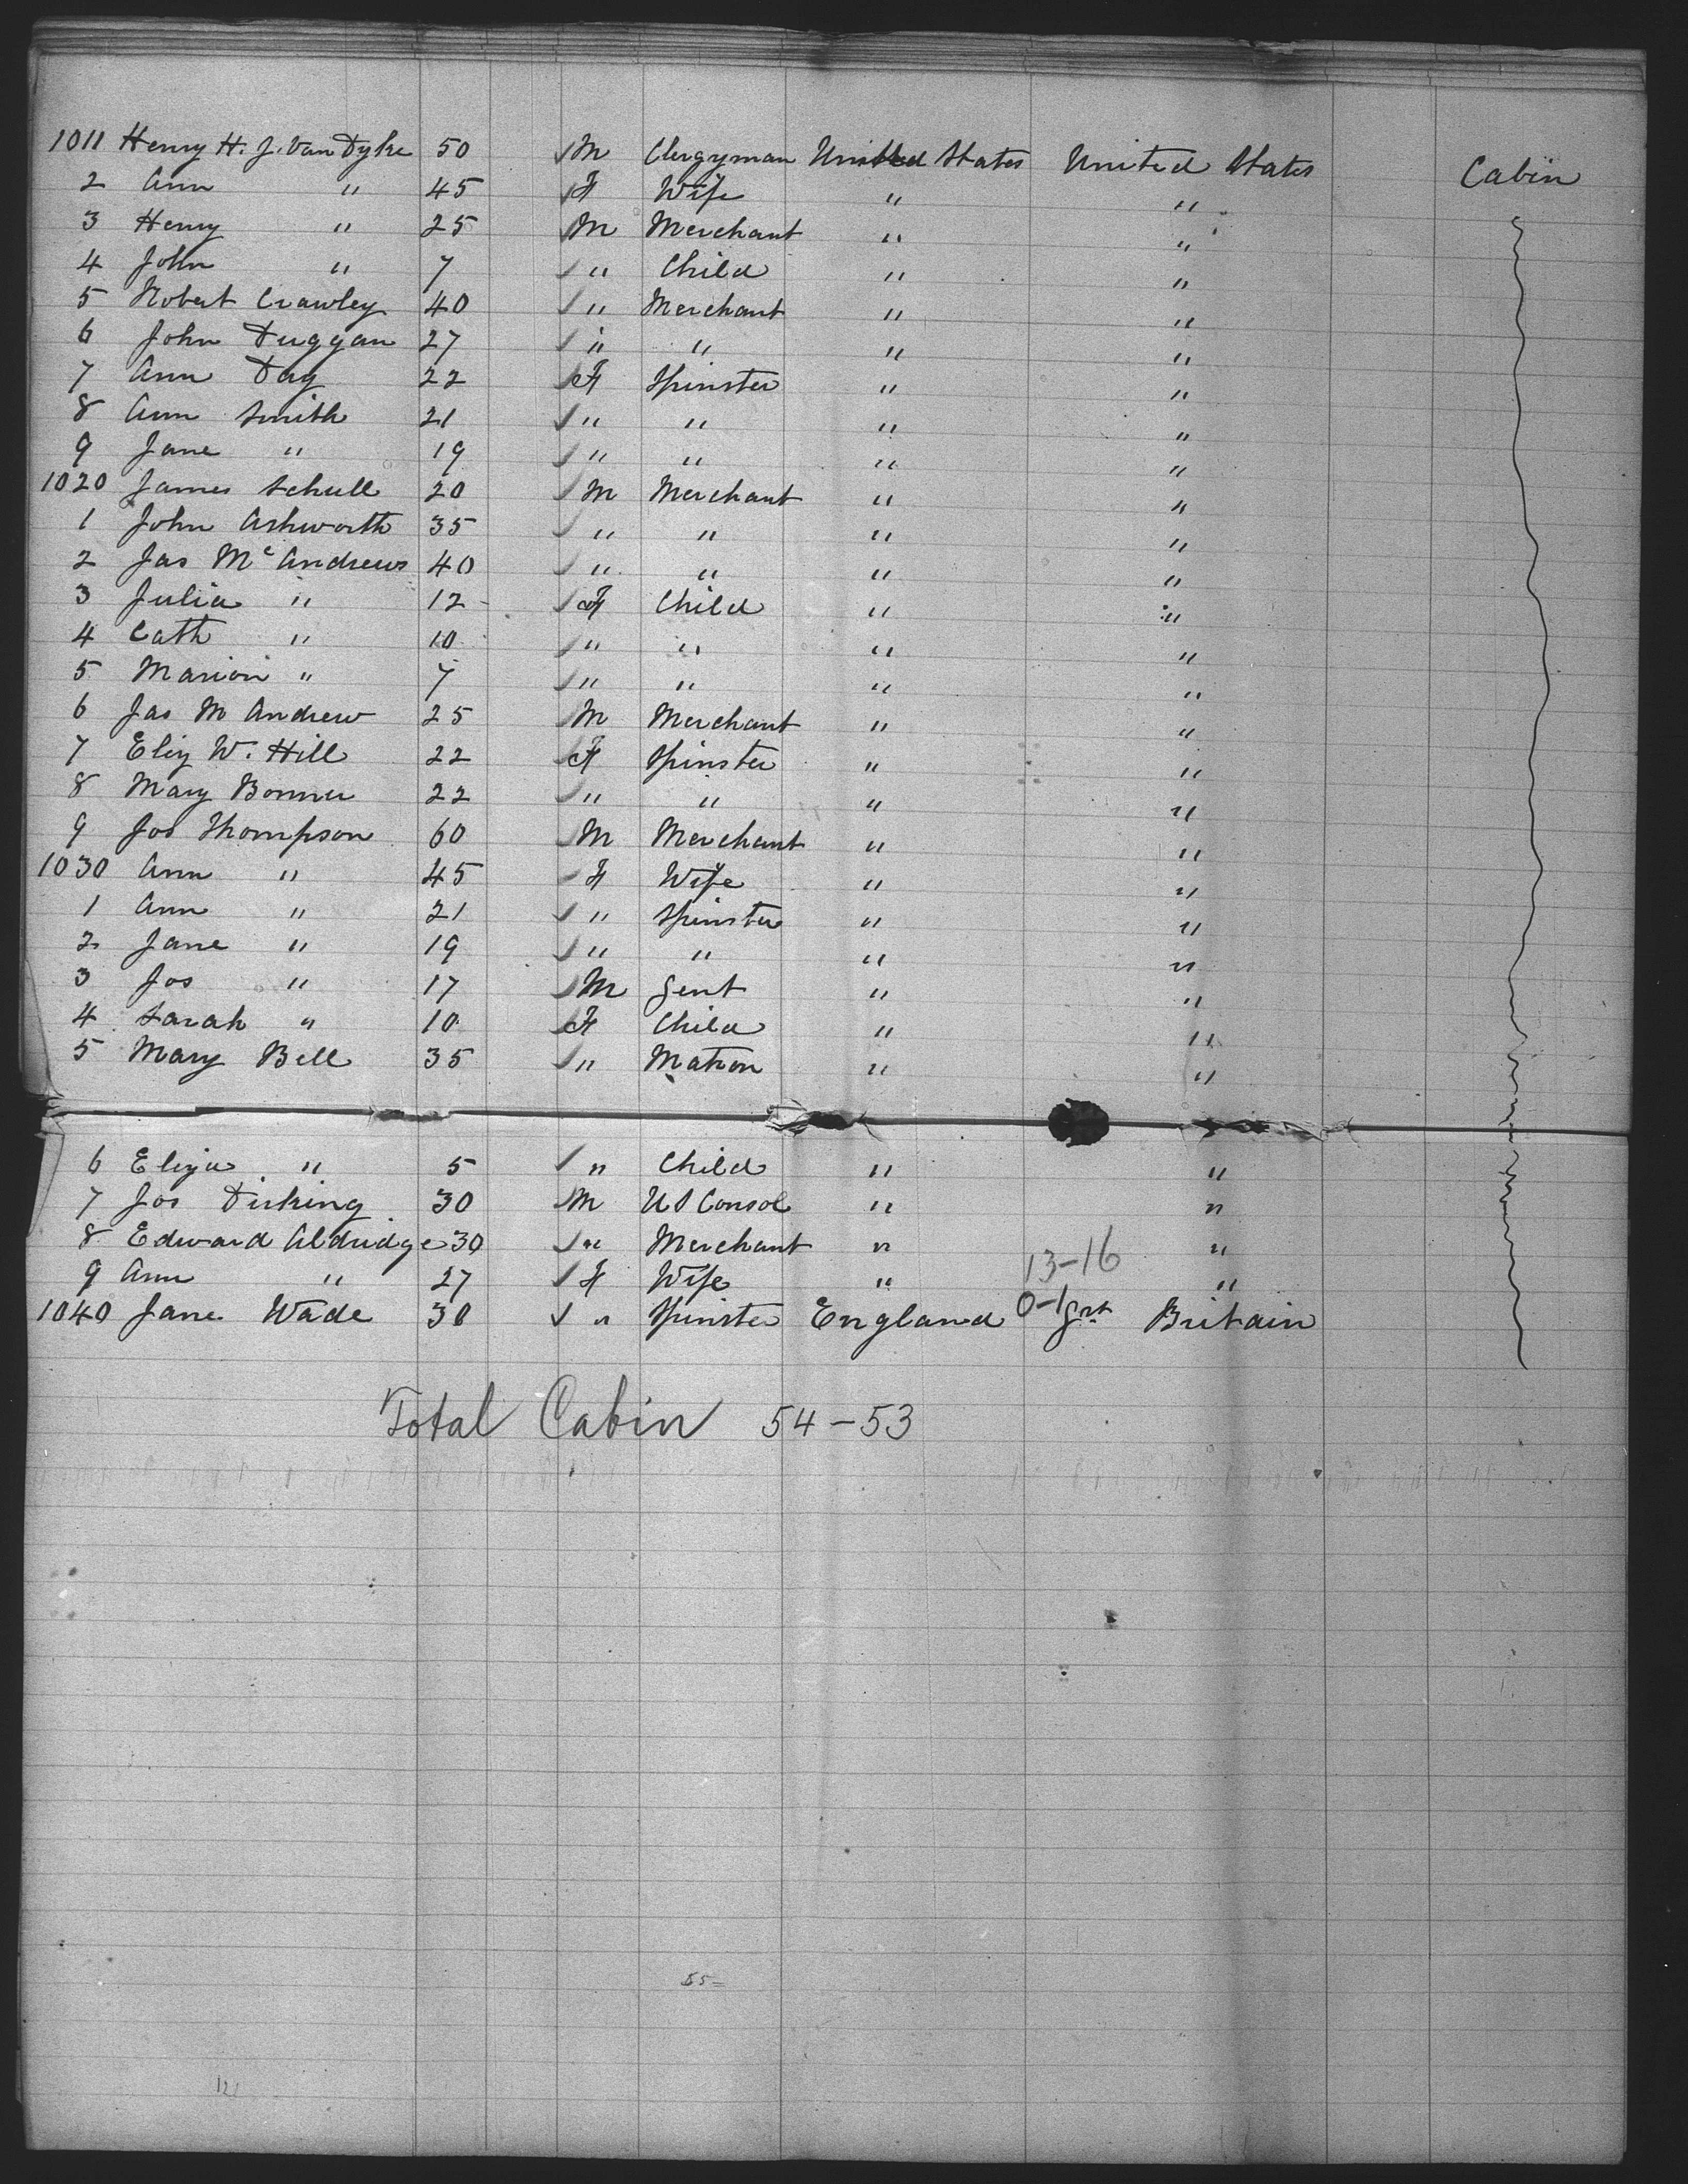 1011 Henry H. J. Van Dyke 50 M Clergyman United States United States Cabin
2 Ann " 45 F Wife " "
3 Henry " 25 M Merchant " "
4 John " 7 " Child " "
5 Robert Crawley 40 " Merchant " "
6 John Duggan 27 " " " "
7 Ann Day 22 F Spinster " "
8 Ann Smith 21 " " " "
9 Jane " 19 " " " "
1020 James Schull 20 M Merchant " "
1 John Ashworth 35 " " " "
2 Jas Mc Andrews 40 " " " "
3 Julia " 12 F Child " "
4 Cath " 10 " " " "
5 Marion " 7 " " " "
6 Jas M Andrew 25 M Merchant " "
7 Eliz W. Hill 22 F Spinster " "
8 Mary Bonner 22 " " " "
9 Jos Thompson 60 M Merchant " "
1030 Ann " 45 F Wife " "
1 Ann " 21 " Spinster " "
2 Jane " 19 " " " "
3 Jos " 17 M Gent " "
4 Sarah " 10 F Child " "
5 Mary Bell 35 " Matron " "
6 Eliza " 5 " Child " "
7 Jos Dirking 30 M US Consol " "
8 Edward Aldridge 30 " Merchant " "
13-16
9 Ann " 27 F Wife " "
1040 Jane Wade 30 " Spinster England 0-1 Grt Britain
Total Cabin 54-53
55
121